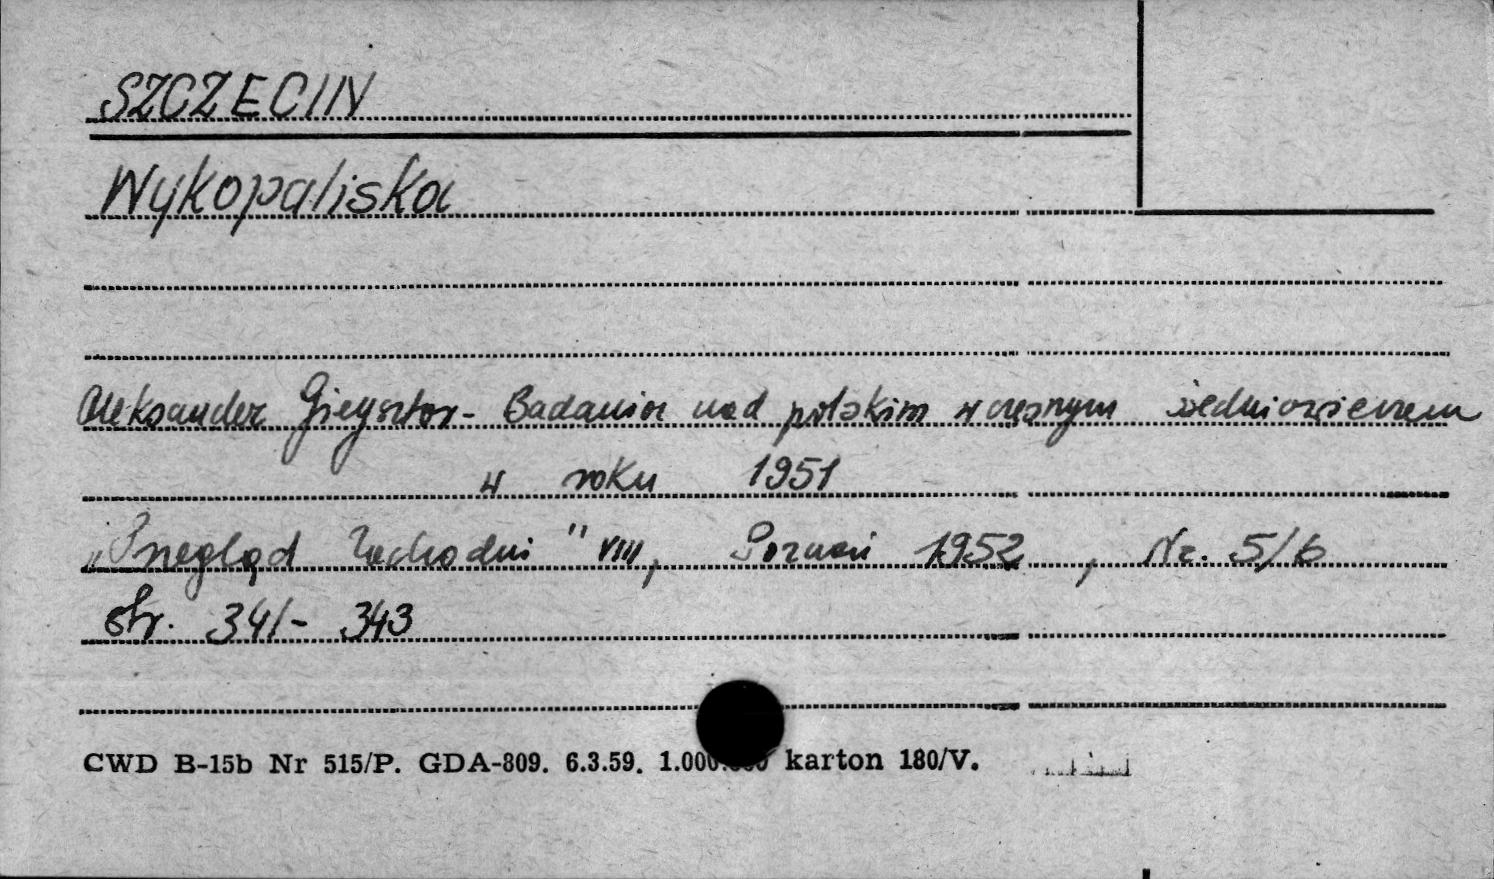 SZCZECIN
Wykopaliska
Aleksander Gieysztor - Badania nad polskim wczesnym średniowieczem
w roku 1951
„Przegląd Zachodni" VIII, Poznań 1952, Nr. 5/6
str. 341 - 343
CWD B-15b Nr 515/P. GDA-809. 6.3.59. 1.000.000 karton 180/V.